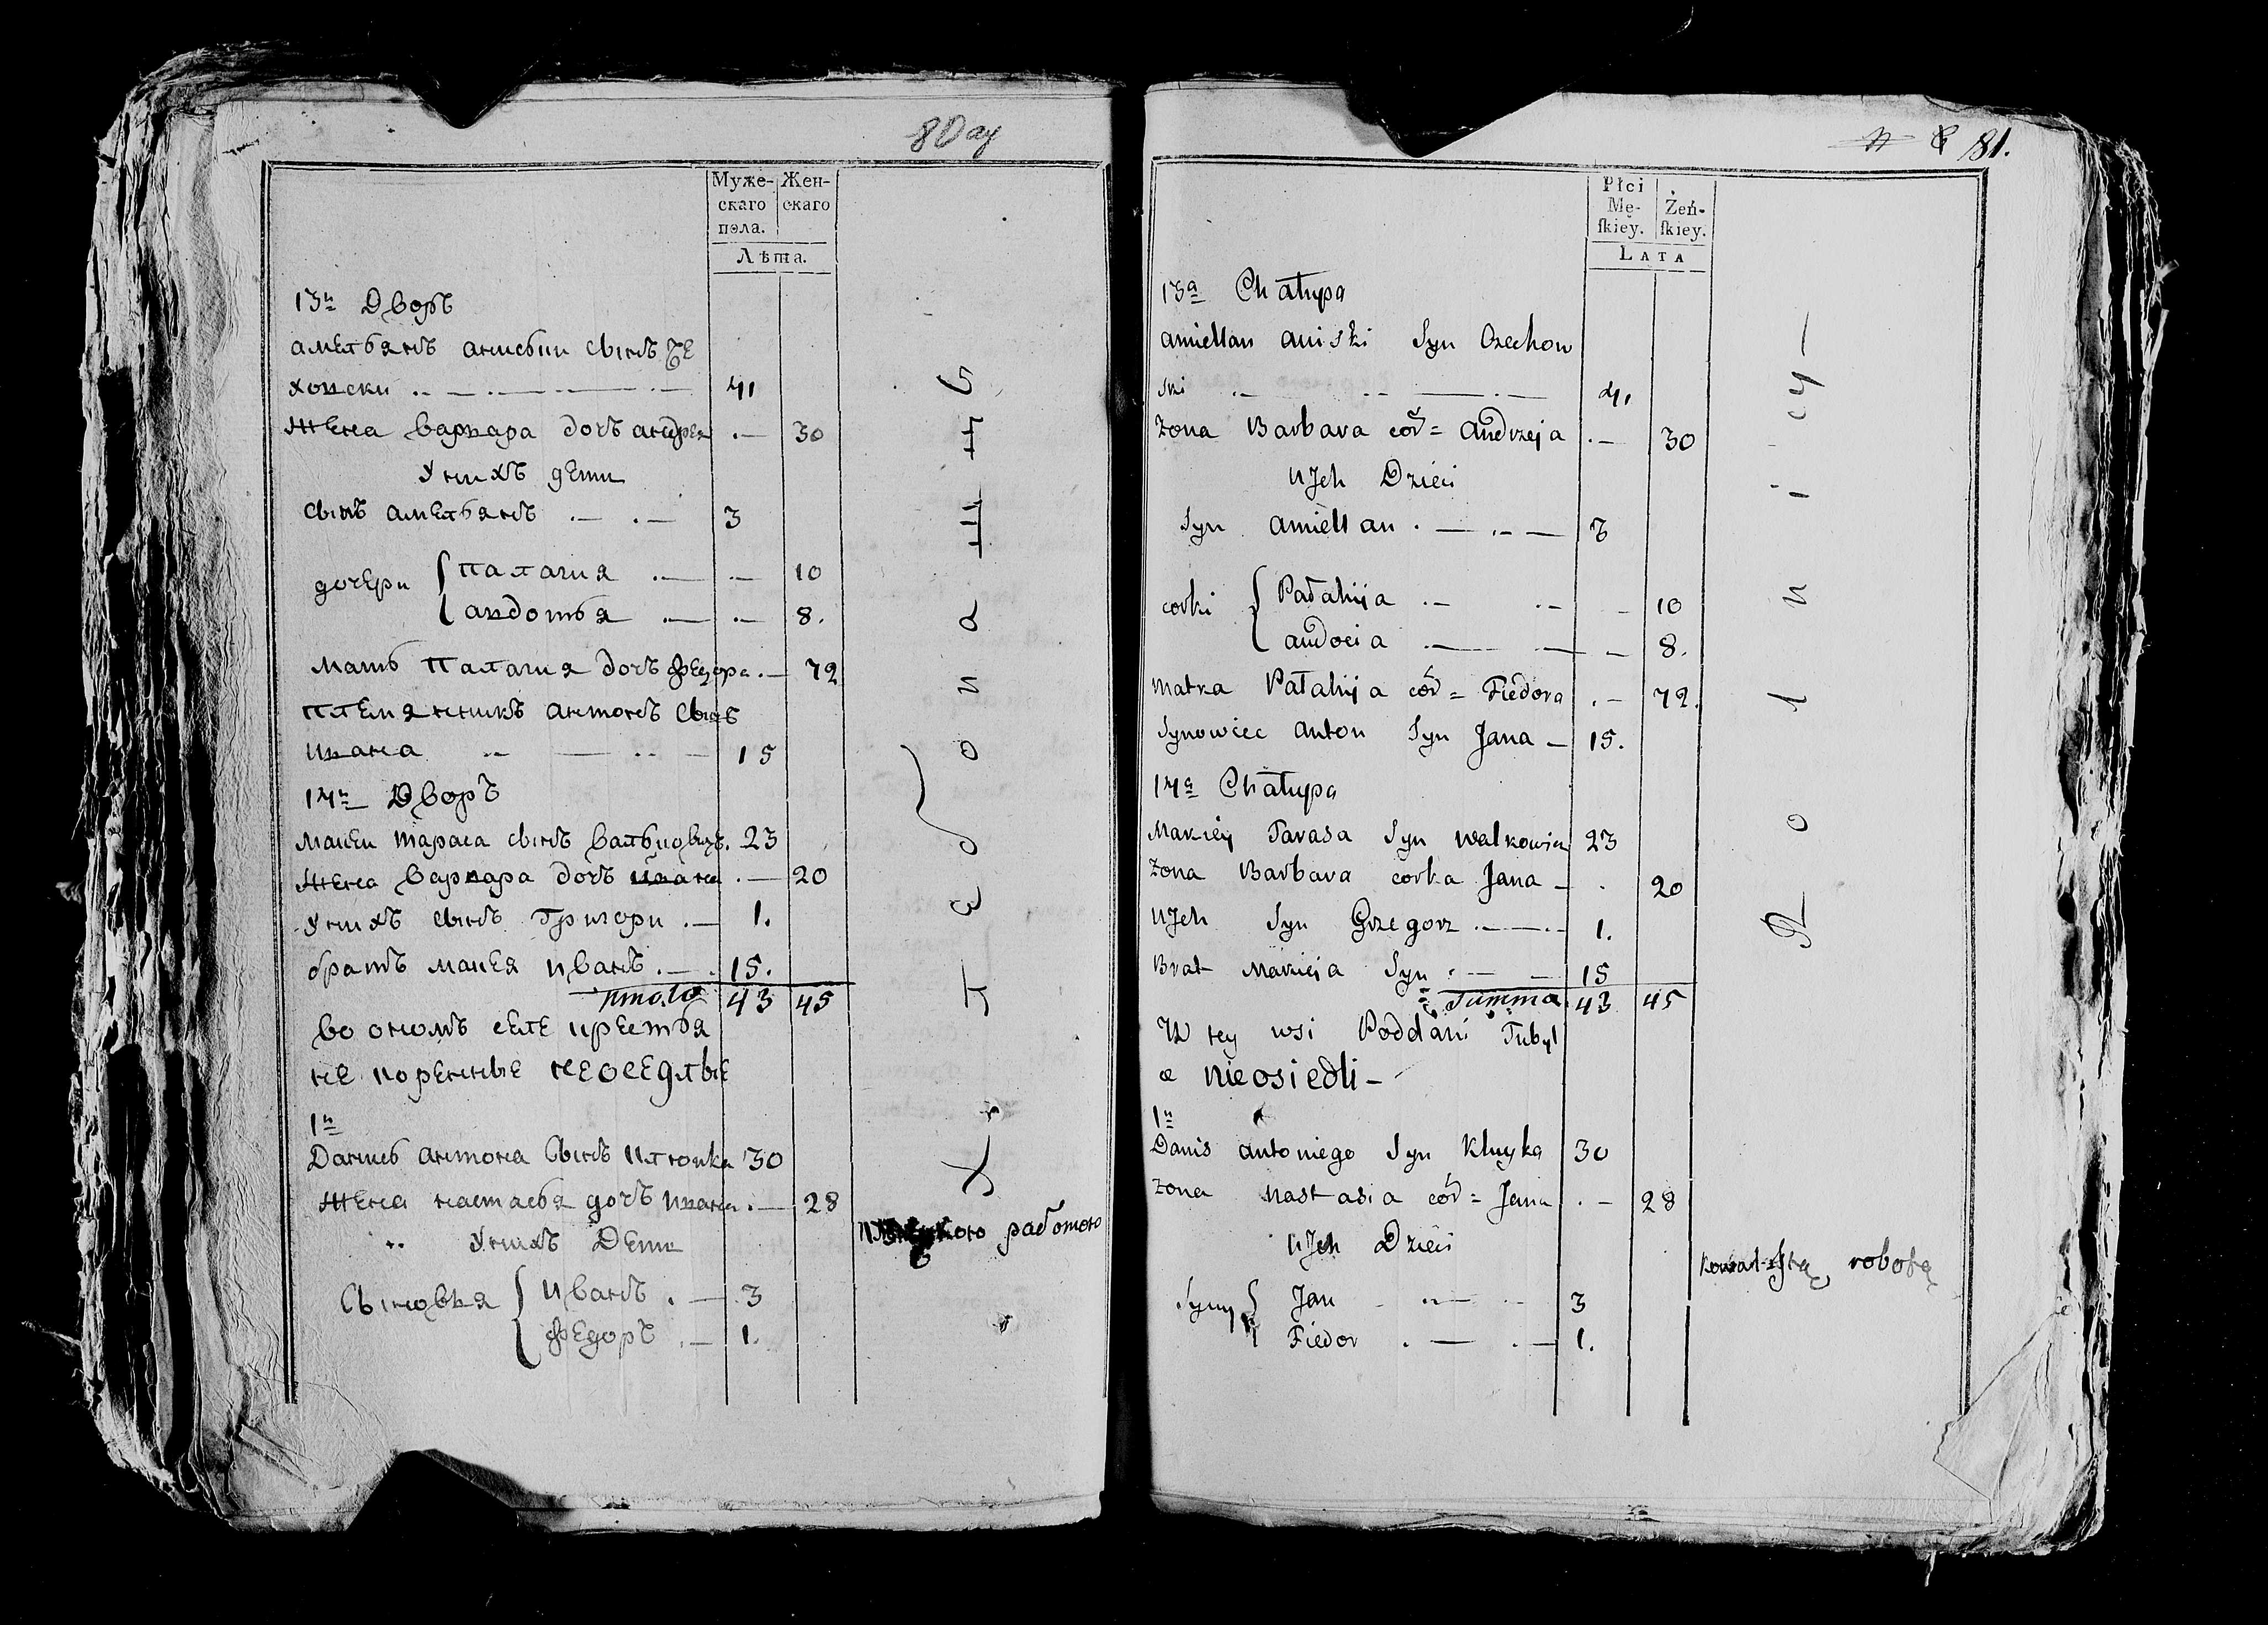 80ау
Муже-
скаго
пола.
Жен-
скаго
Лѣта.
13й Дворъ
амельянъ анисьи сынъ Че
ховски 41
жена варвара дочъ андрея 30
У нихъ дети
сынъ амельянъ 3
дочери палагия 10
авдотья 8.
мать палагия дочъ федора 72
племянникъ антонъ сынъ
ивана 15
14й Дворъ
мацеи тараса сынъ вальковичъ. 23
жена варвара дочъ ивана 20
У нихъ сынъ григори 1.
братъ мацея иванъ 15.
итого 43 45
во ономъ селе крестья
не коренные неоседлые
1й
Данись антона сынъ клюйка 30
жена настасья дочъ ивана 28
У нихъ Дети
Сыновья иванъ 3
федоръ 1.
Хлебопашцы
работою
81.
Płci
Mę-
ſkiey.
Żeń-
ſkiey.
LATA
13a Chałupa
amiellan aniski Syn Czechow
ski 41
żona Barbara cór= andrzeja 30
uJch Dzieci
Syn amiellan 3
corki Pałahija 10
audocia 8.
matka Pałahija cór= Fiedora 72.
Synowiec anton Syn Jana 15.
14a Chałupa
Maciey Tarasa Syn walkowicz 23
żona Barbara corka Jana 20
uJch Syn Grzegorz 1.
Brat Macieja Syn 15
Summa 43 45
W tey wsi Poddani Tubyl
ce nieosiedli
1й
Danis antoniego Syn Kluyka 30
żona nastasia cór= Jana 28
uJch Dzieci
Syny Jan 3
Fiedor 1.
Rolnicy
kowalską robotą